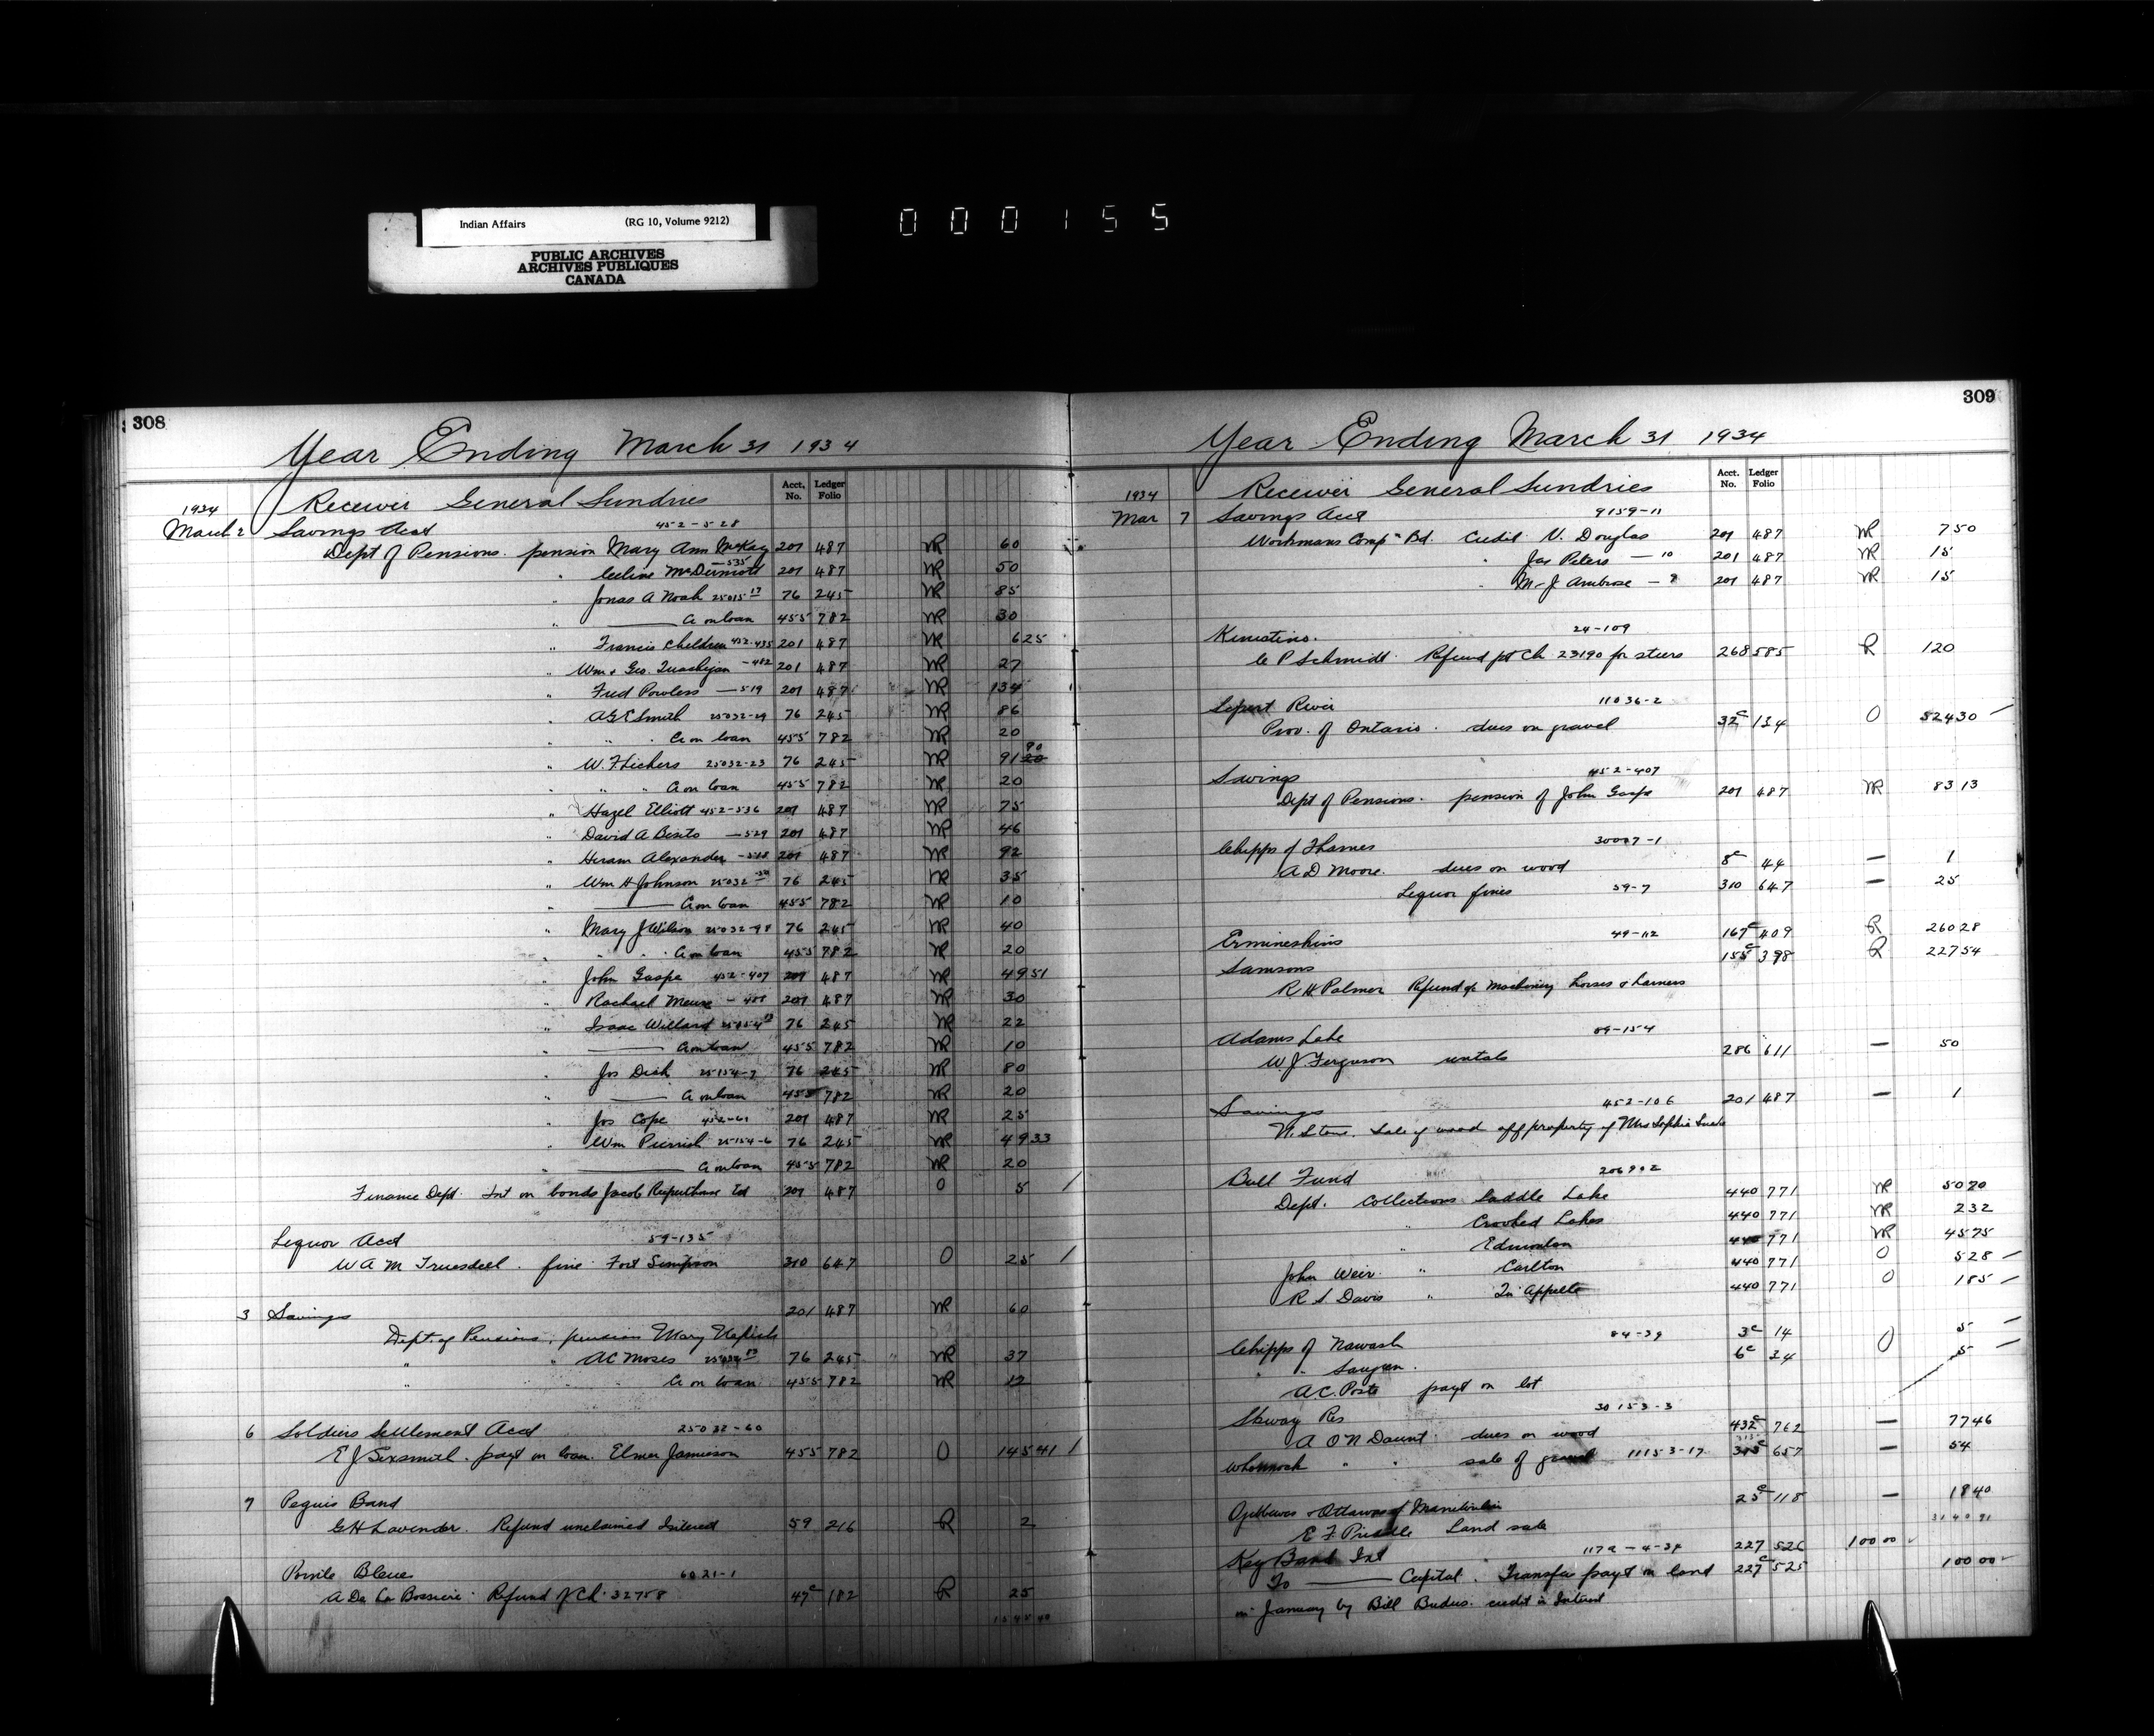 Indian Affairs (RG 10, Volume 9212)
PUBLIC ARCHIVES
ARCHIVES PUBLIQUES
CANADA
000155
308
Year Ending March 31 1934
Acct. No. Ledger Folio
1934 Receiver General Sundries
March 2 Savings Acct 452-528
Dept of Pensions. pension Mary Ann McKay 201 487 NR 60
" Celina McDermott -535 201 487 NR 50
" Jonas A Noah 25015-13 76 245 NR 85
" A on loan 455 782 NR 30
" Francis Children 452-435 201 487 NR 625
" Wm & Geo. -482 201 487 NR 27
" Fred Powless -519 201 487 NR 134
" A G E Smith 25032-29 76 245 NR 86
" " A on loan 455 782 NR 20
" W. F. 25032-23 76 245 NR 91 90
" " A on loan 455 782 NR 20
" Hazel Elliott 452-536 201 487 NR 75
" David A -529 201 487 NR 46
" Hiram Alexander 201 487 NR 92
" Wm H Johnson 25032-30 76 245 NR 35
A on loan 455 782 NR 10
" Mary J Wilson 25032-98 76 245 NR 40
" " A on loan 455 782 NR 20
" John Gaspe 452-407 201 487 NR 4951
" Rachael Meuse 201 487 NR 30
" Isaac Willard 76 245 NR 22
" A on loan 455 782 NR 10
" Jos Dick 25154-7 76 245 NR 80
" A on loan 455 782 NR 20
" Jos Cope 452-61 201 487 NR 25
" Wm 25154-6 76 245 NR 4933
" A on loan 455 782 NR 20
Finance Dept. Int on bonds Jacob 201 487 O 5 /
Liquor Acct 59-135
W A M Truesdell. fine Fort Simpson 310 647 O 25 /
3 Savings 201 487 NR 60
Dept. of Pensions, pension Mary
" " A C Moses 76 245 NR 37
" A on loan 455 782 NR 12
6 Soldiers Settlement Acct 25032-60
E J Sexsmith. payt on loan. Elmer Jamieson 455 782 O 14541 /
7 Peguis Band
G H Lavender. Refund unclaimed Interest 59 216 R 2
Pointe Bleue 6021-1
A De La Bossiere. Refund of Ch. 32758 47c 182 R 25
309
Year Ending March 31 1934
Acct. No. Ledger Folio
1934 Receiver General Sundries
Mar 7 Savings Acct 9159-11
Workmans Comp" Bd. Credit V. Douglas 201 487 NR 750
" Jas Peters - 10 201 487 NR 15
" M J Ambrose - 9 201 487 NR 15
24-109
C P Schmidt. Refund pt Ch 23190 for steers 268 585 R 120
River 11036-2
Prov. of Ontario. dues on gravel 32c 134 O 52430
Savings 452-407
Dept of Pensions. pension of John Gaspe 201 487 NR 8313
Chipps of Thames 30007-1
A D Moore. dues on wood 8c 44 — 1
Liquor fines 59-7 310 647 — 25
Ermineskins 49-112 167c 409 R 26028
Samsons 155c 398 R 22754
R. H Palmer Refund of Machinery horses & harness
Adams Lake
W. J. Ferguson rentals 286 611 — 50
Savings 452-106 201 487 — 1
N. Stone. Sale of wood off property of Mrs Sophia
Bull Fund 206902
Dept. Collections Saddle Lake 440 771 NR 5020
" Crooked Lakes 440 771 NR 232
" Edmonton 440 771 NR 4575
John Weir " Carlton 440 771 O 528
R S Davis " Qu'Appelle 440 771 O 185
Chipps of Nawash 84-39 3c 14 O 5
" " Saugeen. 6c 24 5
A C. Poste payt on lot
Skway Res 30153-3
A O'N Daunt. dues on wood 432c 762 — 7746
Whonnock " " sale of gravel 11153-17 657 — 54
Ojibbewas & Ottawas of Manitoulin 25c 118 — 1840
E F. Priddle Land sale 314091
Key Band Int 227 526 10000
To Capital. Transfer payt on land 227c 525 10000
in January by Bill credit in Interest